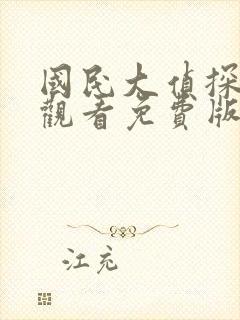 國民大偵探
觀看免費版
江充